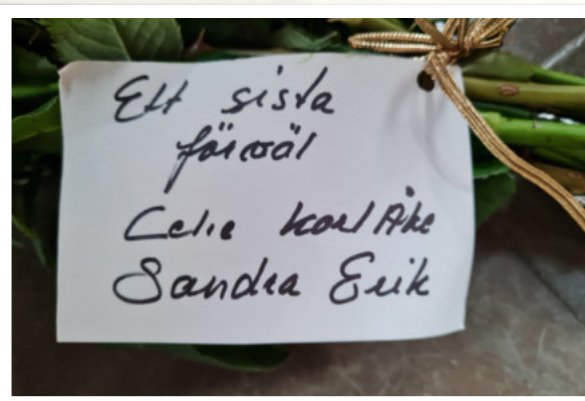 Ett sista
farväl
Celie Karl Åke
Sandra Erik